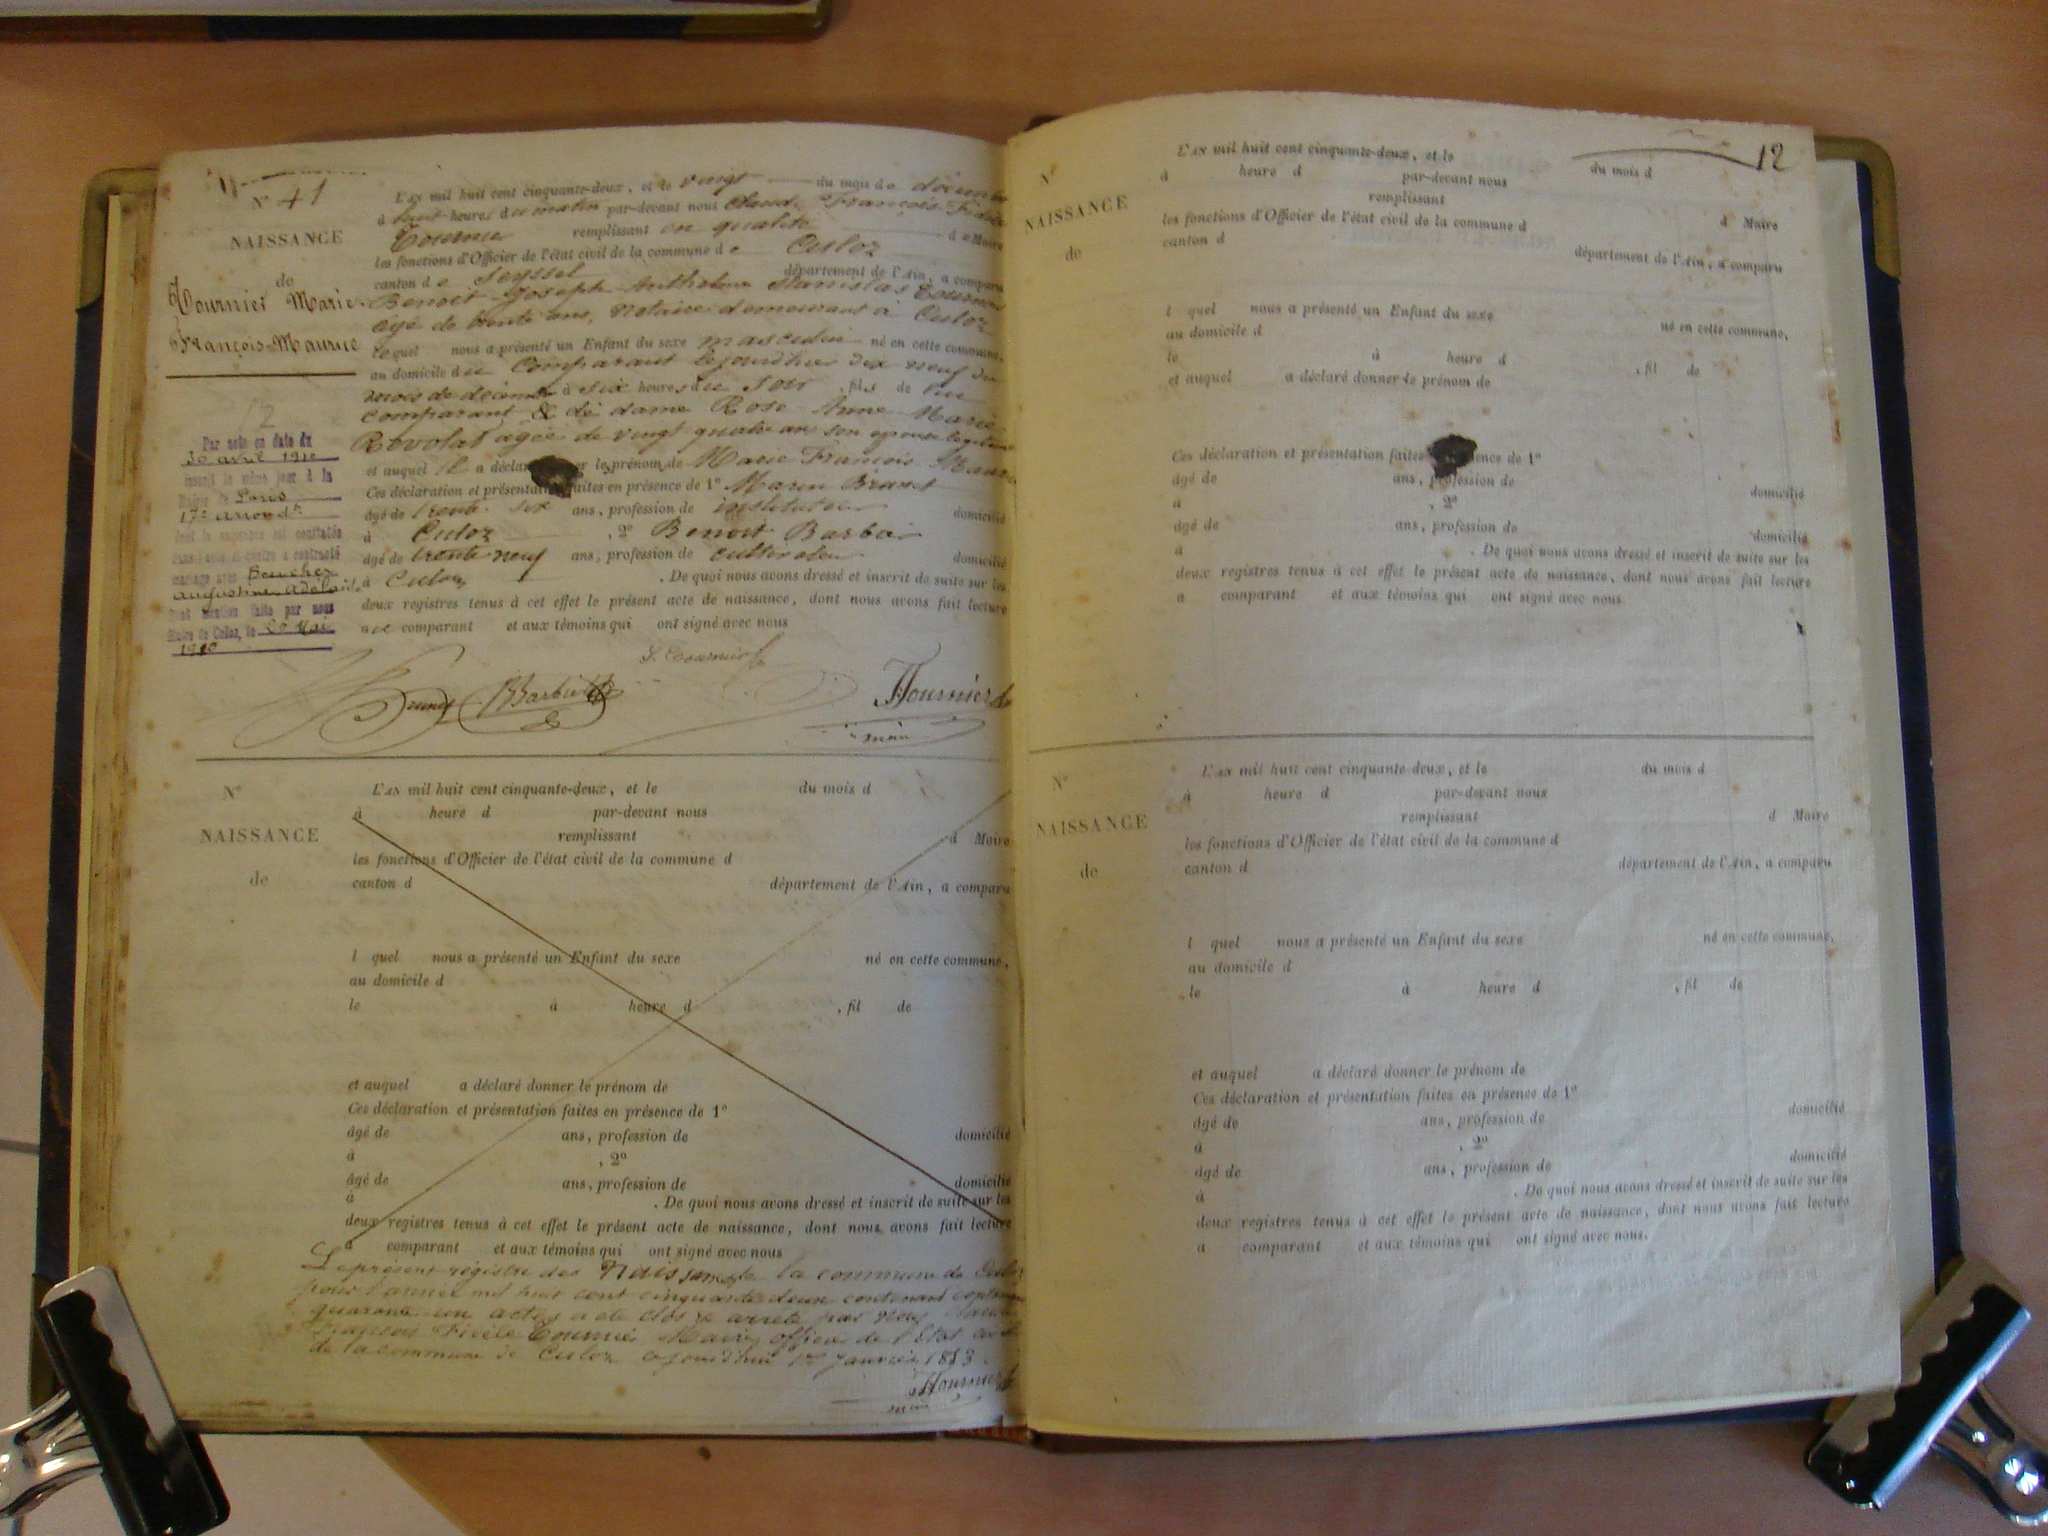 N° 41
NAISSANCE
de
Tournier Marie
François-Maurice
12
Par acte en date du
30 avril 1910
inscrit le même jour à la
Mairie de Paris
17e arrondt
mariage avec
Augustine Adélaïde
mention faite par nous
Maire de Culoz, le 20 Mai
1910
L'AN mil huit cent cinquante-deux, et le vingt du mois de décembre
à huit heures du matin par-devant nous Claude François Fidèle
Tournier remplissant en qualité de Maire
les fonctions d'Officier de l'état civil de la commune de Culoz
canton de Seyssel département de l'Ain, a comparu
Benoit Joseph Anthelme Stanislas Tournier
âgé de trente ans, notaire demeurant à Culoz
lequel nous a présenté un Enfant du sexe masculin né en cette commune,
au domicile du comparant le jourd'hier dix neuf du
mois de décembre à six heures du soir, fils de lui
comparant & de dame Rose Anne Marie
Revolat âgée de vingt quatre ans son épouse légitime
et auquel il a déclaré le prénom de Marie François Maurice
Ces déclaration et présentation faites en présence de 1° Marin
âgé de trente six ans, profession de instituteur domicilié
à Culoz, 2° Benoit Barbier
âgé de trente neuf ans, profession de cultivateur domicilié
à Culoz. De quoi nous avons dressé et inscrit de suite sur les
deux registres tenus à cet effet le présent acte de naissance, dont nous avons fait lecture
au comparant et aux témoins qui ont signé avec nous
S. Tournier
Tournier
maire
N°
NAISSANCE
de
L'AN mil huit cent cinquante-deux, et le du mois d
à heure d par-devant nous
remplissant d Maire
les fonctions d'Officier de l'état civil de la commune d
canton d département de l'Ain, a comparu
l quel nous a présenté un Enfant du sexe né en cette commune,
au domicile d
le à heure d , fil de
et auquel a déclaré donner le prénom de
Ces déclaration et présentation faites en présence de 1°
âgé de ans, profession de domicilié
à , 2°
âgé de ans, profession de domicilié
à . De quoi nous avons dressé et inscrit de suite sur les
deux registres tenus à cet effet le présent acte de naissance, dont nous avons fait lecture
a comparant et aux témoins qui ont signé avec nous
Le présent régistre des Naissances de la commune de Culoz
pour l'année mil huit cent cinquante deux contenant
quarante un actes a été clos & arrêté par Nous Claude
François Fidèle Tournier Maire, officier de l'Etat civil
de la commune de Culoz ce jourd'hui 1er janvier 1853.
Tournier
maire
12
N°
NAISSANCE
de
L'AN mil huit cent cinquante-deux, et le du mois d
à heure d par-devant nous
remplissant d Maire
les fonctions d'Officier de l'état civil de la commune d
canton d département de l'Ain, a comparu
l quel nous a présenté un Enfant du sexe né en cette commune,
au domicile d
le à heure d , fil de
et auquel a déclaré donner le prénom de
Ces déclaration et présentation faites en présence de 1°
âgé de ans, profession de domicilié
à , 2°
âgé de ans, profession de domicilié
à . De quoi nous avons dressé et inscrit de suite sur les
deux registres tenus à cet effet le présent acte de naissance, dont nous avons fait lecture
a comparant et aux témoins qui ont signé avec nous.
N°
NAISSANCE
de
L'AN mil huit cent cinquante-deux, et le du mois d
à heure d par-devant nous
remplissant d Maire
les fonctions d'Officier de l'état civil de la commune d
canton d département de l'Ain, a comparu
l quel nous a présenté un Enfant du sexe né en cette commune,
au domicile d
le à heure d , fil de
et auquel a déclaré donner le prénom de
Ces déclaration et présentation faites en présence de 1°
âgé de ans, profession de domicilié
à , 2°
âgé de ans, profession de domicilié
à . De quoi nous avons dressé et inscrit de suite sur les
deux registres tenus à cet effet le présent acte de naissance, dont nous avons fait lecture
a comparant et aux témoins qui ont signé avec nous.